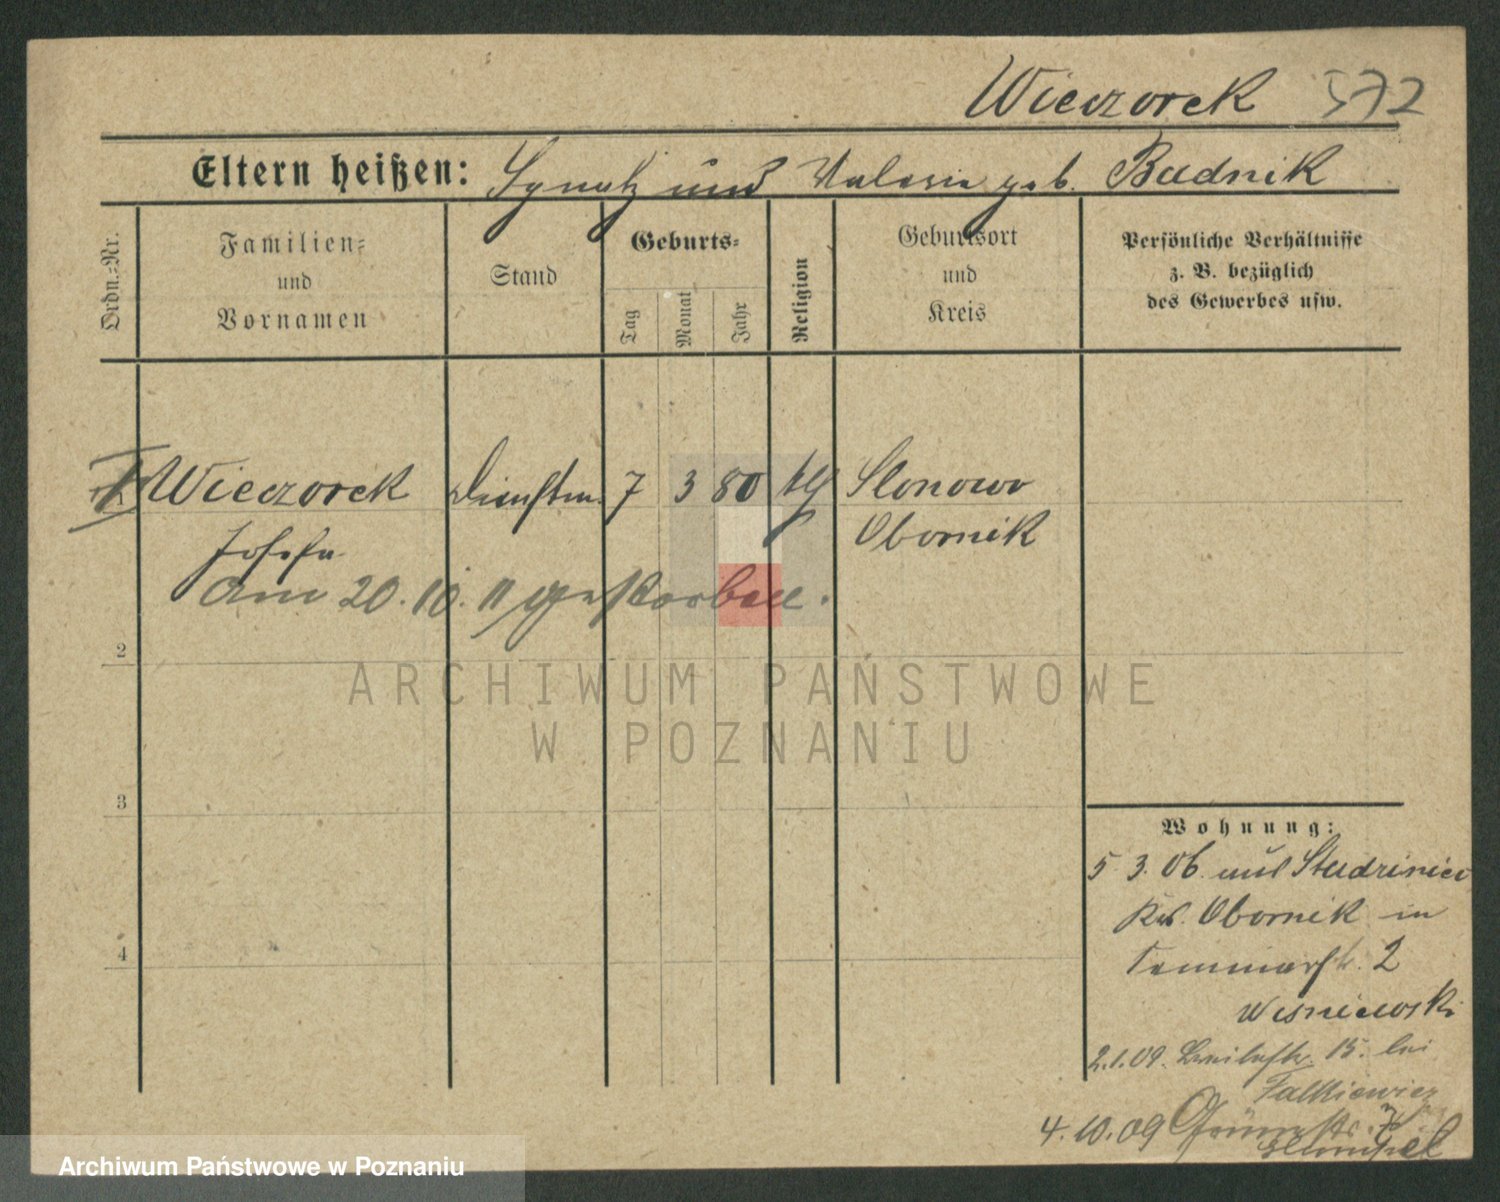 Wieczorek 572
Eltern heißen: Ignatz und Valeria geb. Budnik
Ordn.=Nr.
Familien=
und
Vornamen
Stand
Geburts=
Tag
Monat
Jahr
Religion
Geburtsort
und
Kreis
Persönliche Verhältnisse
z. B. bezüglich
des Gewerbes usw.
1 Wieczorek Dienstm. 7 3 80 kth Slonowo
Josefa Obornik
Am 20.10.11 gestorben.
2
ARCHIWUM PAŃSTWOWE
W POZNANIU
3
4
Wohnung:
5 3. 06. aus Studziniec
Krs. Obornik in
2
Wisniewski
2.1.09. Breitestr. 15. bei
Falkiewicz
4.10.09 Grünestr.
Archiwum Państwowe w Poznaniu